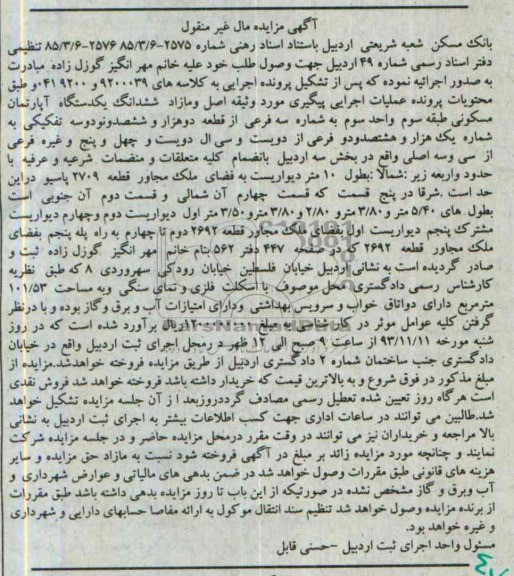 آگهی مزایده مال غیر منقول
بانک مسکن شعبه شریعتی اردبیل باستناد اسناد رهنی شماره ۲۵۷۵-۸۵/۳/۶ ۲۵۷۶-۸۵/۳/۶ تنظیمی
دفتر اسناد رسمی شماره ۴۹ اردبیل جهت وصول طلب خود علیه خانم مهر انگیز گوزل زاده مبادرت
به صدور اجرائیه نموده که پس از تشکیل پرونده اجرایی به کلاسه های ۹۲۰۰۰۳۹ و ۹۲۰۰۰۴۱ و طبق
محتویات پرونده عملیات اجرایی پیگیری مورد وثیقه اصل ومازاد ششدانگ یکدستگاه آپارتمان
مسکونی طبقه سوم واحد سوم به شماره سه فرعی از قطعه دوهزار و ششصدونودوسه تفکیکی به
شماره یک هزار و هشتصدودو فرعی از دویست و سی ال دویست و چهل و پنج و غیره فرعی
از سی وسه اصلی واقع در بخش سه اردبیل بانضمام کلیه متعلقات و منضمات شرعیه و عرفیه با
حدود واربعه زیر :شمالا :بطول ۱۰ متر دیواریست به فضای ملک مجاور قطعه ۲۷۰۹ پاسیو دراین
حد است .شرقا در پنج قسمت که قسمت چهارم آن شمالی و قسمت دوم آن جنوبی است
بطول های ۵/۴۰ متر و ۳/۸۰ مترو ۲/۸۰ و ۳/۸۰ مترو ۳/۵۰ متر اول دیواریست دوم وچهارم دیواریست
مشترک پنجم دیواریست اول بفضای ملک مجاور قطعه ۲۶۹۲ دوم تا چهارم به راه پله پنجم بفضای
ملک مجاور قطعه ۲۶۹۲ که در صفحه ۴۴۷ دفتر ۵۶۲ بنام خانم مهر انگیز گوزل زاده ثبت و
صادر گردیده است به نشانی اردبیل خیابان فلسطین خیابان رودکی سهروردی ۸ که طبق نظریه
کارشناس رسمی دادگستری محل موصوف با اسکلت فلزی و نمای سنگی وبه مساحت ۱۰۱/۵۳
مترمربع دارای دواتاق خواب و سرویس بهداشتی ودارای امتیازات آب و برق و گاز بوده و با درنظر
گرفتن کلیه عوامل موثر در کارشناسی به مبلغ ریال برآورد شده است که در روز
شنبه مورخه ۹۳/۱۱/۱۱ از ساعت ۹ صبح الی ۱۲ ظهر د رمحل اجرای ثبت اردبیل واقع در خیابان
دادگستری جنب ساختمان شماره ۲ دادگستری اردبیل از طریق مزایده فروخته خواهدشد.مزایده از
مبلغ مذکور در فوق شروع و به بالاترین قیمت که خریدار داشته باشد فروخته خواهد شد فروش نقدی
است هرگاه روز تعیین شده تعطیل رسمی مصادف گرددروزبعد ا ز آن جلسه مزایده تشکیل خواهد
شد.طالبین می توانند در ساعات اداری جهت کسب اطلاعات بیشتر به اجرای ثبت اردبیل به نشانی
بالا مراجعه و خریداران نیز می توانند در وقت مقرر درمحل مزایده حاضر و در جلسه مزایده شرکت
نمایند و چنانچه مورد مزایده زائد بر مبلغ در آگهی فروخته شود نسبت به مازاد حق مزایده و سایر
هزینه های قانونی طبق مقررات وصول خواهد شد در ضمن بدهی های مالیاتی و عوارض شهرداری و
آب وبرق و گاز مشخص نشده در صورتیکه از این باب تا روز مزایده بدهی داشته باشد طبق مقررات
از برنده مزایده وصول خواهد شد تنظیم سند انتقال موکول به ارائه مفاصا حسابهای دارایی و شهرداری
و غیره خواهد بود.
مسئول واحد اجرای ثبت اردبیل –حسنی قابل